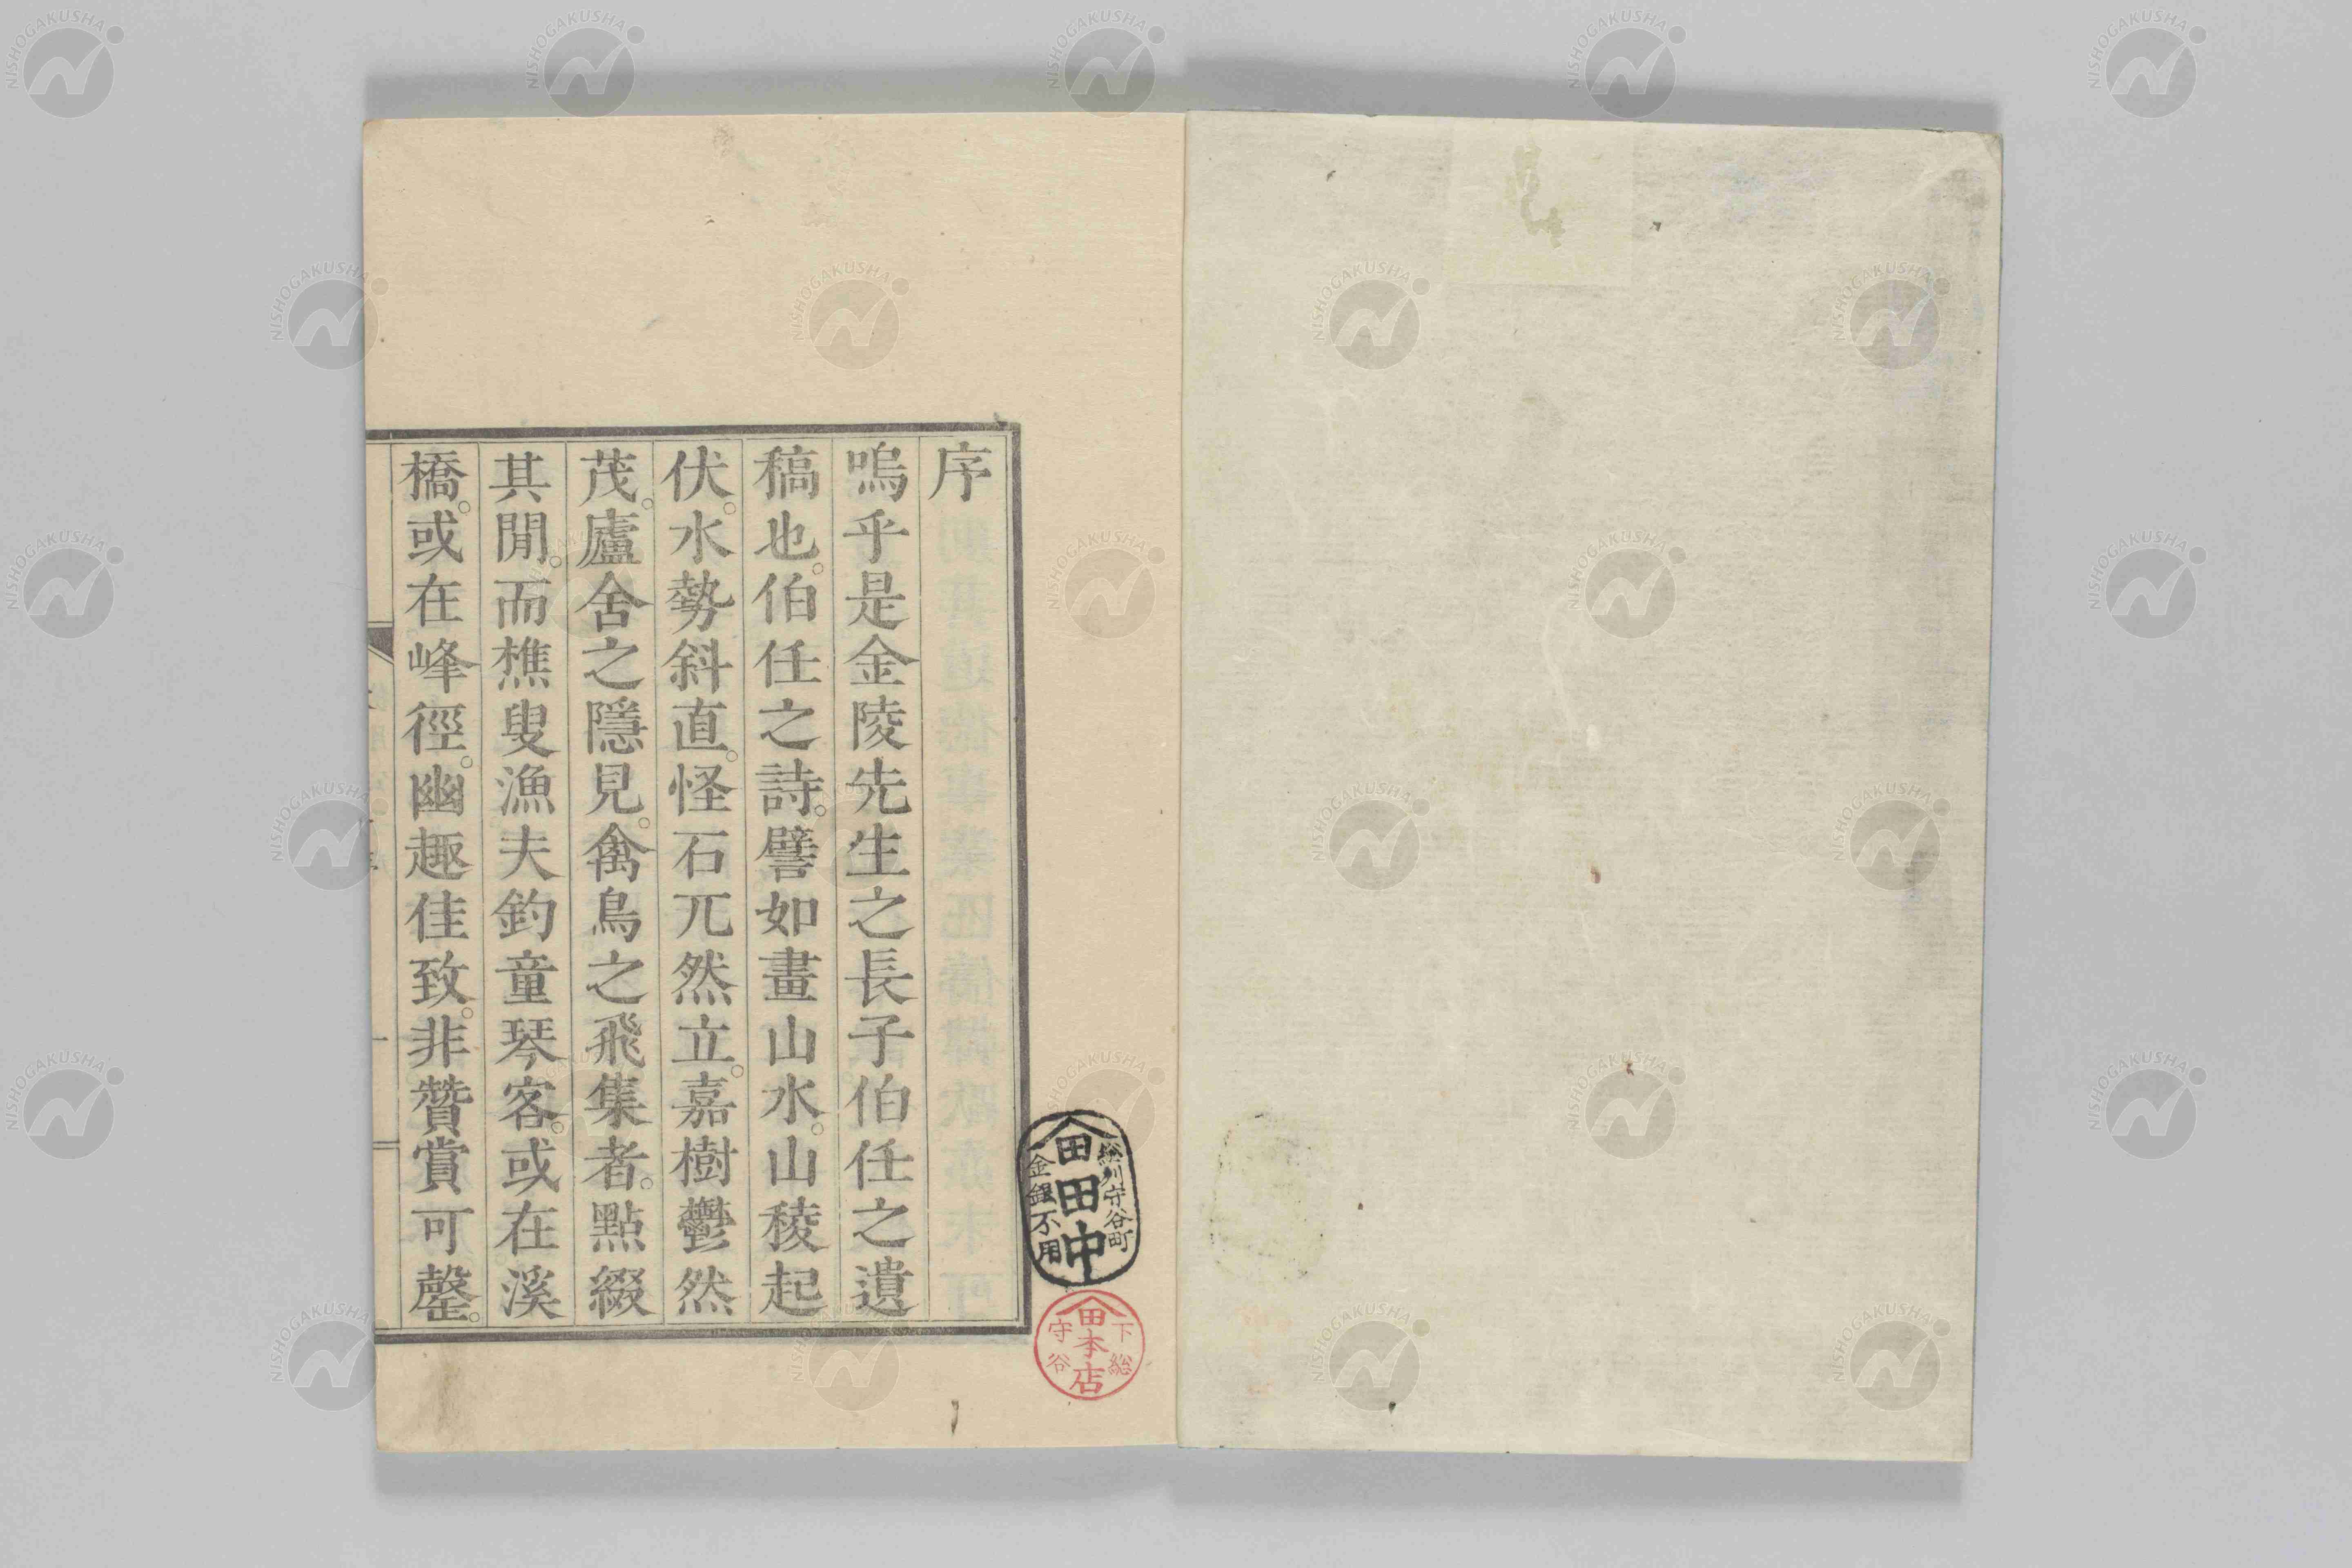 序
嗚乎是金陵先生之長子伯任之遺
稿也。伯任之詩。譬如畫山水。山稜起
伏。水勢斜直。怪石兀然立。嘉樹鬱然
茂。廬舍之隱見。禽鳥之飛集者。點綴
其閒。而樵叟漁夫釣童琴客。或在溪
橋。或在峰徑。幽趣佳致。非贊賞可罄。
総州守谷町
田田中
金銀不用
下総
田本店
守谷
NISHOGAKUSHA